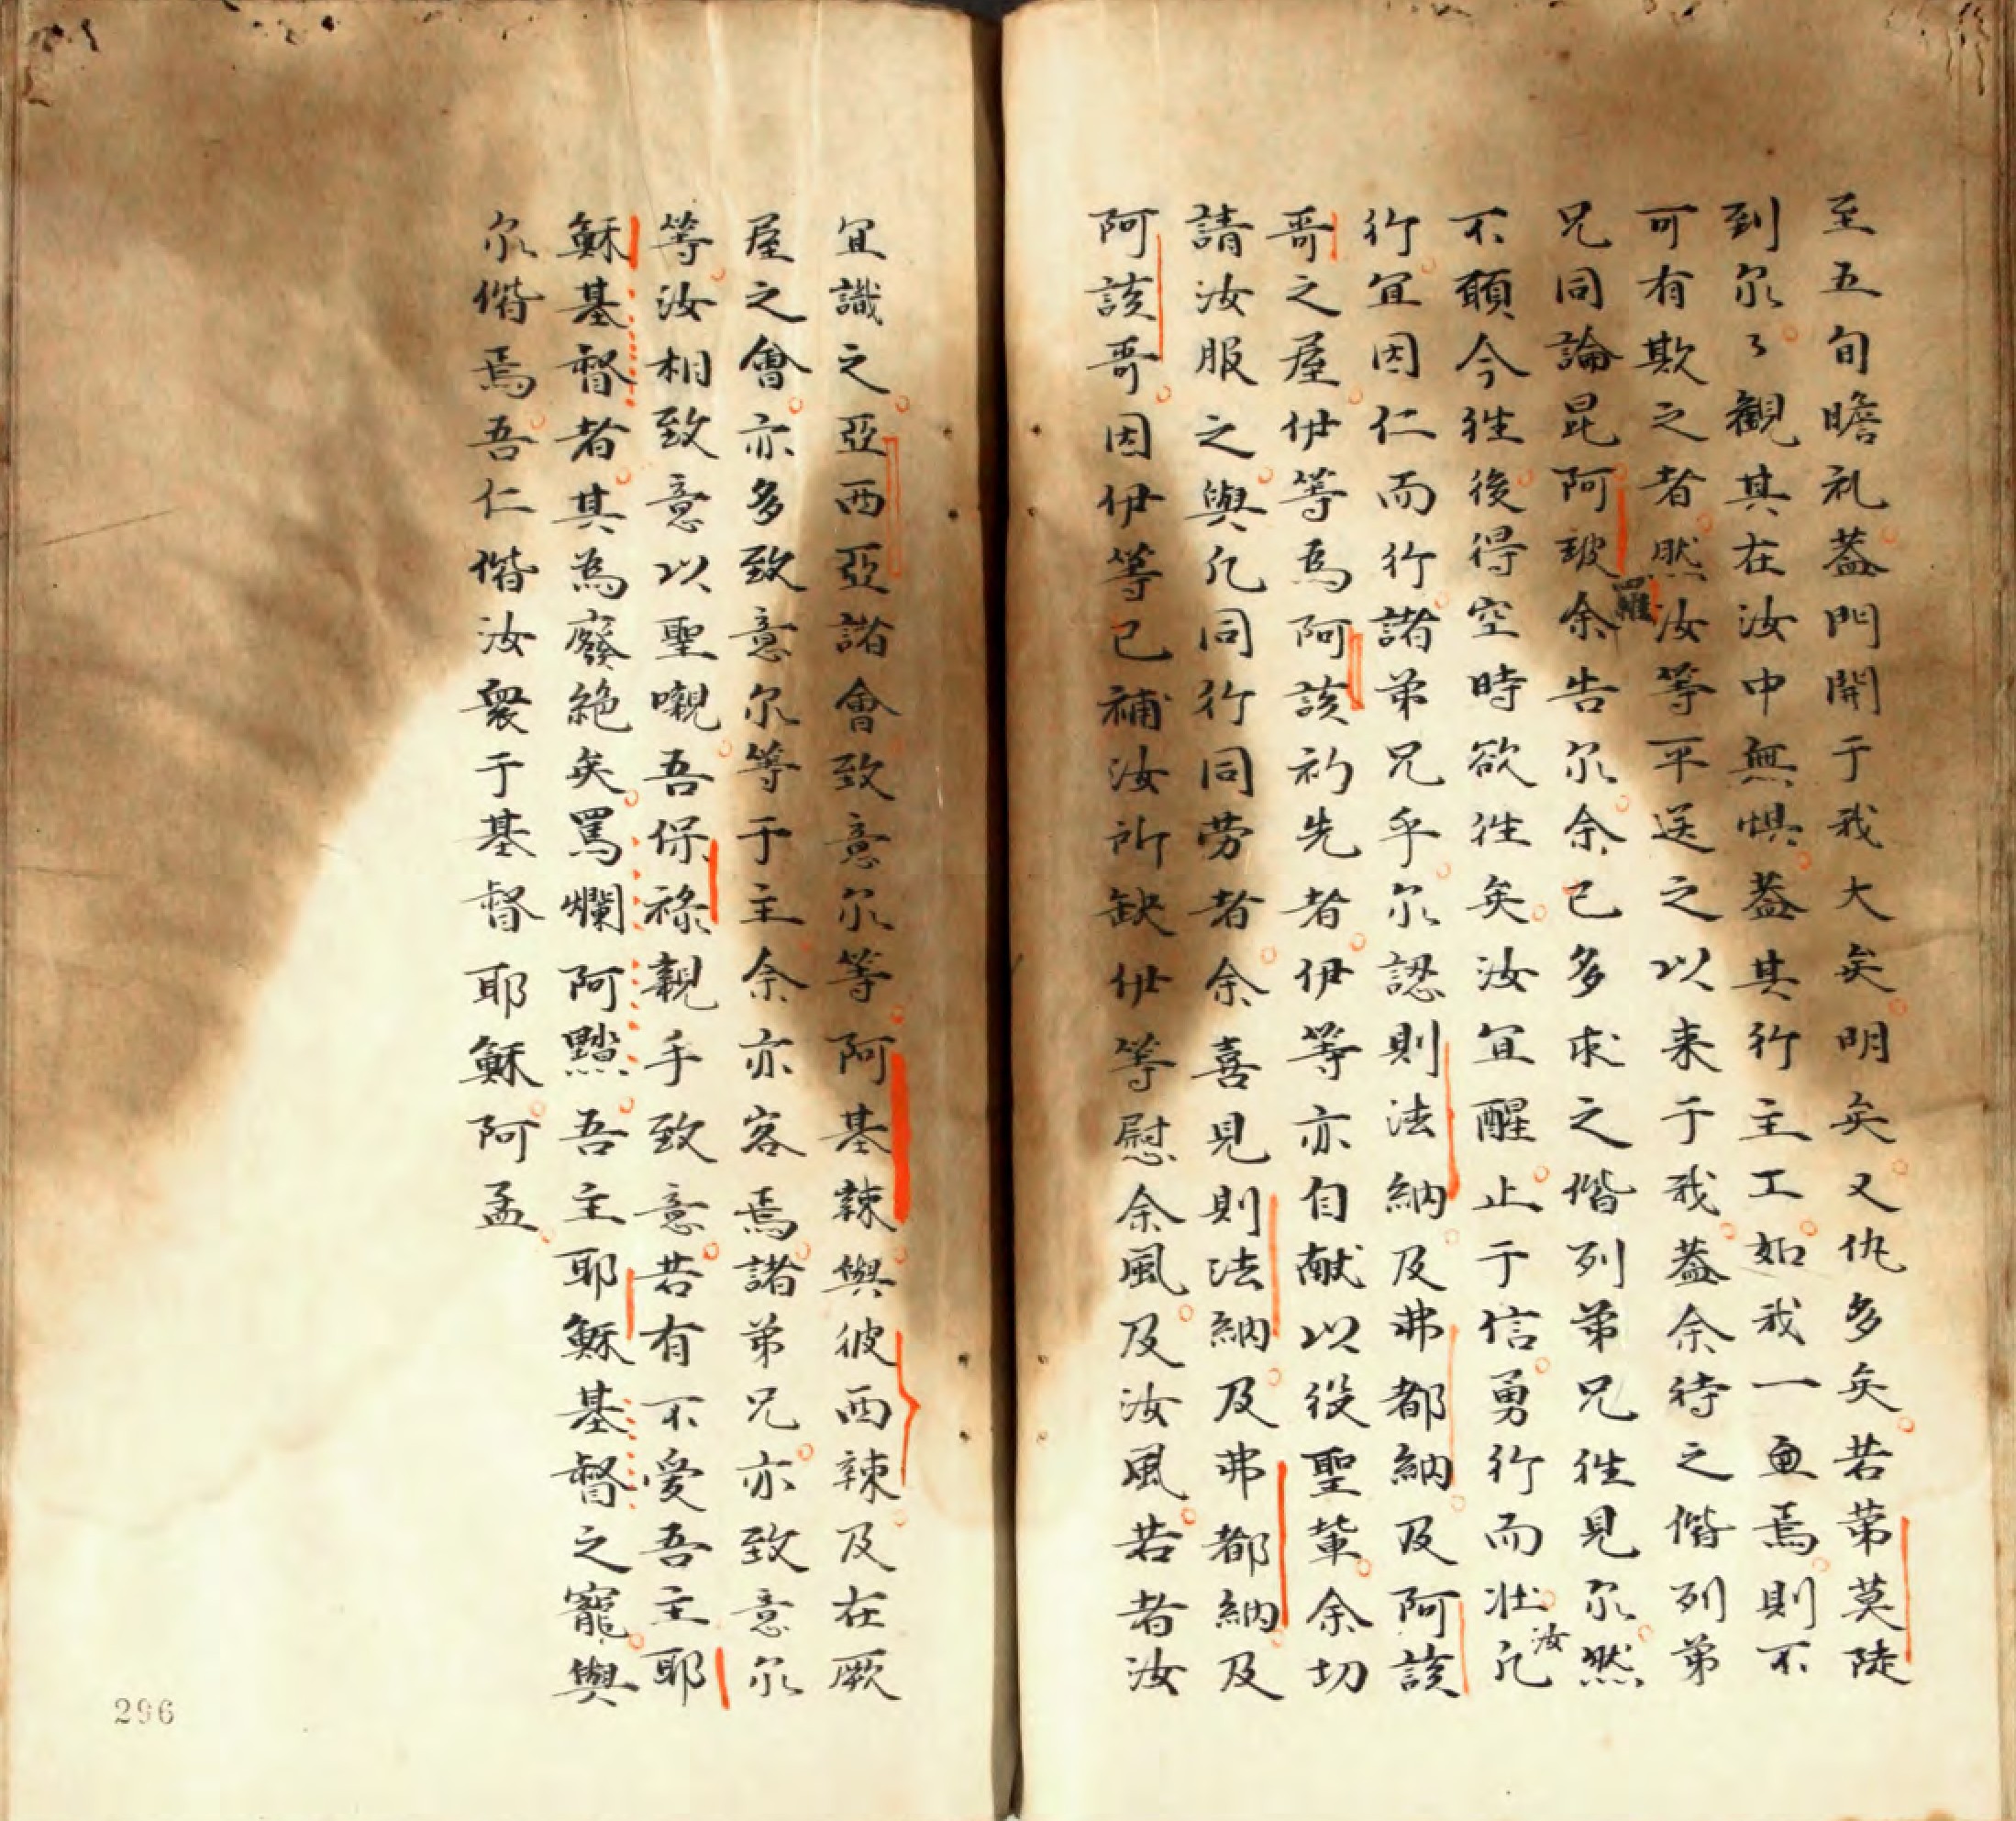 至五旬瞻礼蓋門開于我大矣明矣又仇多矣若苐莫陡
到尔々觀其在汝中無惧蓋其行主工如我一𠕅焉則不
可有欺之者然汝等平送之以来于我蓋余待之偕列弟
兄同論昆阿皷羅余告尔余已多求之偕列弟兄徃見尔然
不願今徃後得空時欲徃矣汝宜醒止于信勇行而壮凢汝
行宜因仁而行諸弟兄乎尔認則法納及弗都納及阿該
哥之屋伊等爲阿該初先者伊等亦自献以役聖軰余切
請汝服之與凢同行同劳者余喜見則法納及弗都納及
阿該哥因伊等已補汝所缺伊等慰余風及汝風若者汝
宜識之亞西亞諸會致意尔等阿基辣與彼西辣及在厥
屋之會亦多致意尔等于主余亦客焉諸弟兄亦致意尔
等汝相致意以聖嚫吾保祿親手致意若有不愛吾主耶
穌基督者其為廢絶矣罵爛阿黯吾主耶穌基督之寵與
尔偕焉吾仁偕汝衆于基督耶穌阿孟
296